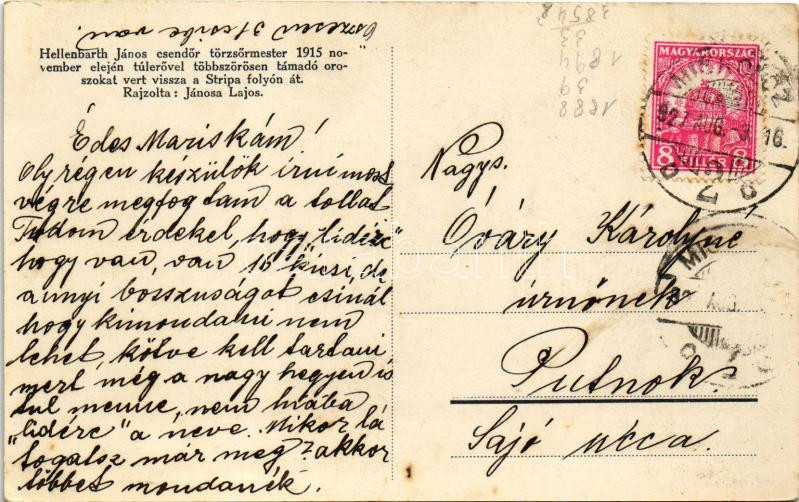 összesen 31 csibe van.
Hellenbarth János csendőr törzsőrmester 1915 no-
vember elején túlerővel többszörösen támadó oro-
szokat vert vissza a Stripa folyón át.
Rajzolta: Jánosa Lajos.
Édes Mariskám!
Oly régen készülök írni most
végre megfogtam a tollat
Tudom érdekel, hogy "lidérc"
hogy van, van 16 kicsi, de
annyi bosszuságot csinál
hogy kimondani nem
lehet, kötve kell tartani,
mert még a nagy hegyen is
tul menne, nem hiába
"lidérc" a neve. Mikor lá-
togatsz már meg? akkor
többet mondanék.
3854
33
1894
39
1888
MAGYARORSZÁG
8 FILLÉR 8
Nagys.
Óváry Károlyné
úrnőnek
Putnok
Sajó ucca.